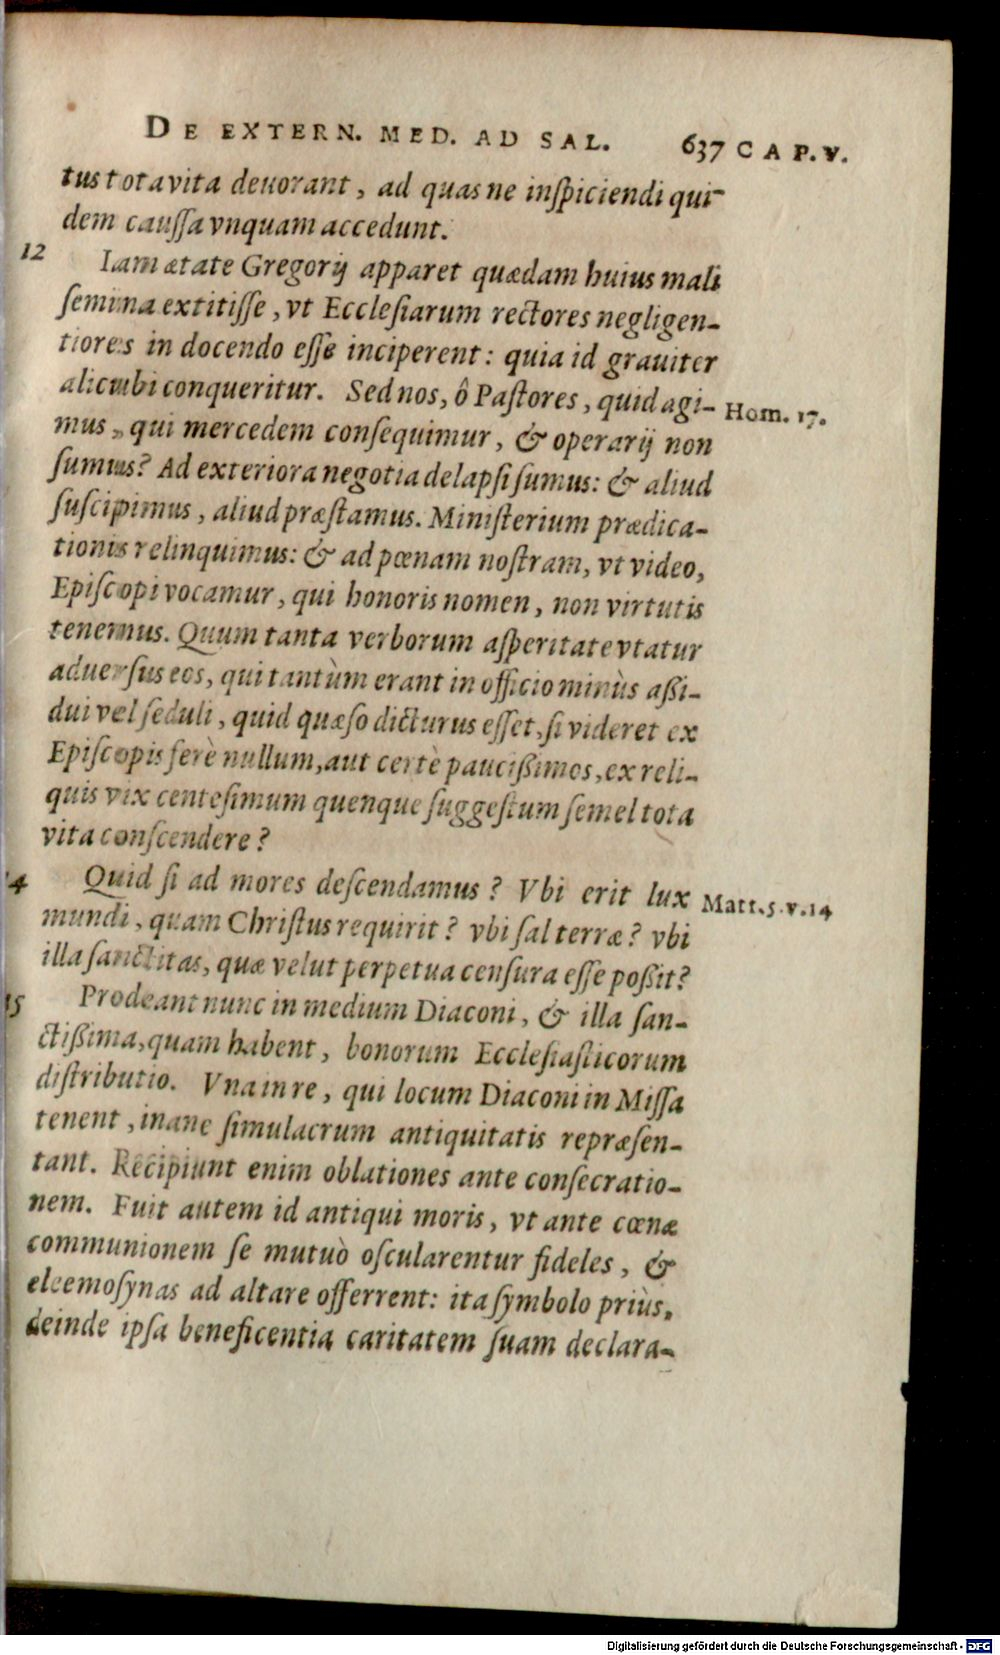 DE EXTERN. MED. AD SAL. 637 CAP. V.
tus tota vita deuorant, ad quas ne inſpiciendi qui-
dem cauſſa vnquam accedunt.
12 Iam ætate Gregorij apparet quædam huius mali
ſemina extitiſſe, vt Eccleſiarum rectores negligen-
tiores in docendo eſſe inciperent: quia id grauiter
alicubi conqueritur. Sed nos, ô Paſtores, quid agi- Hom. 17.
mus, qui mercedem conſequimur, & operarij non
ſumus? Ad exteriora negotia delapſi ſumus: & aliud
ſuſcipimus, aliud præſtamus. Miniſterium prædica-
tionis relinquimus: & ad pœnam noſtram, vt video,
Epiſcopi vocamur, qui honoris nomen, non virtutis
tenemus. Quum tanta verborum aſperitate vtatur
aduerſus eos, qui tantùm erant in officio minùs aßi-
dui vel ſeduli, quid quæſo dicturus eſſet, ſi videret ex
Epiſcopis ferè nullum, aut certè paucißimos, ex reli-
quis vix centeſimum quenque ſuggeſtum ſemel tota
vita conſcendere?
14 Quid ſi ad mores deſcendamus? Vbi erit lux Matt. 5. v. 14
mundi, quam Chriſtus requirit? vbi ſal terræ? vbi
illa ſanctitas, quæ velut perpetua cenſura eſſe poßit?
15 Prodeant nunc in medium Diaconi, & illa ſan-
ctißima, quam habent, bonorum Eccleſiaſticorum
diſtributio. Vna in re, qui locum Diaconi in Miſſa
tenent, inane ſimulacrum antiquitatis repræſen-
tant. Recipiunt enim oblationes ante conſecratio-
nem. Fuit autem id antiqui moris, vt ante cœnæ
communionem ſe mutuò oſcularentur fideles, &
eleemoſynas ad altare offerrent: ita ſymbolo priùs,
deinde ipſa beneficentia caritatem ſuam declara-
Digitalisierung gefördert durch die Deutsche Forschungsgemeinschaft - DFG